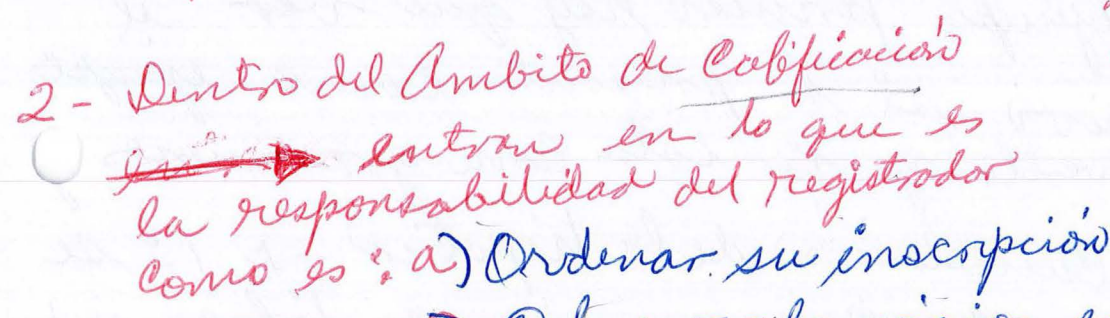 2- Dentro del Ambito de Calificación
entran en lo que es
la responsabilidad del registrador
como es: a) Ordenar su inscripción